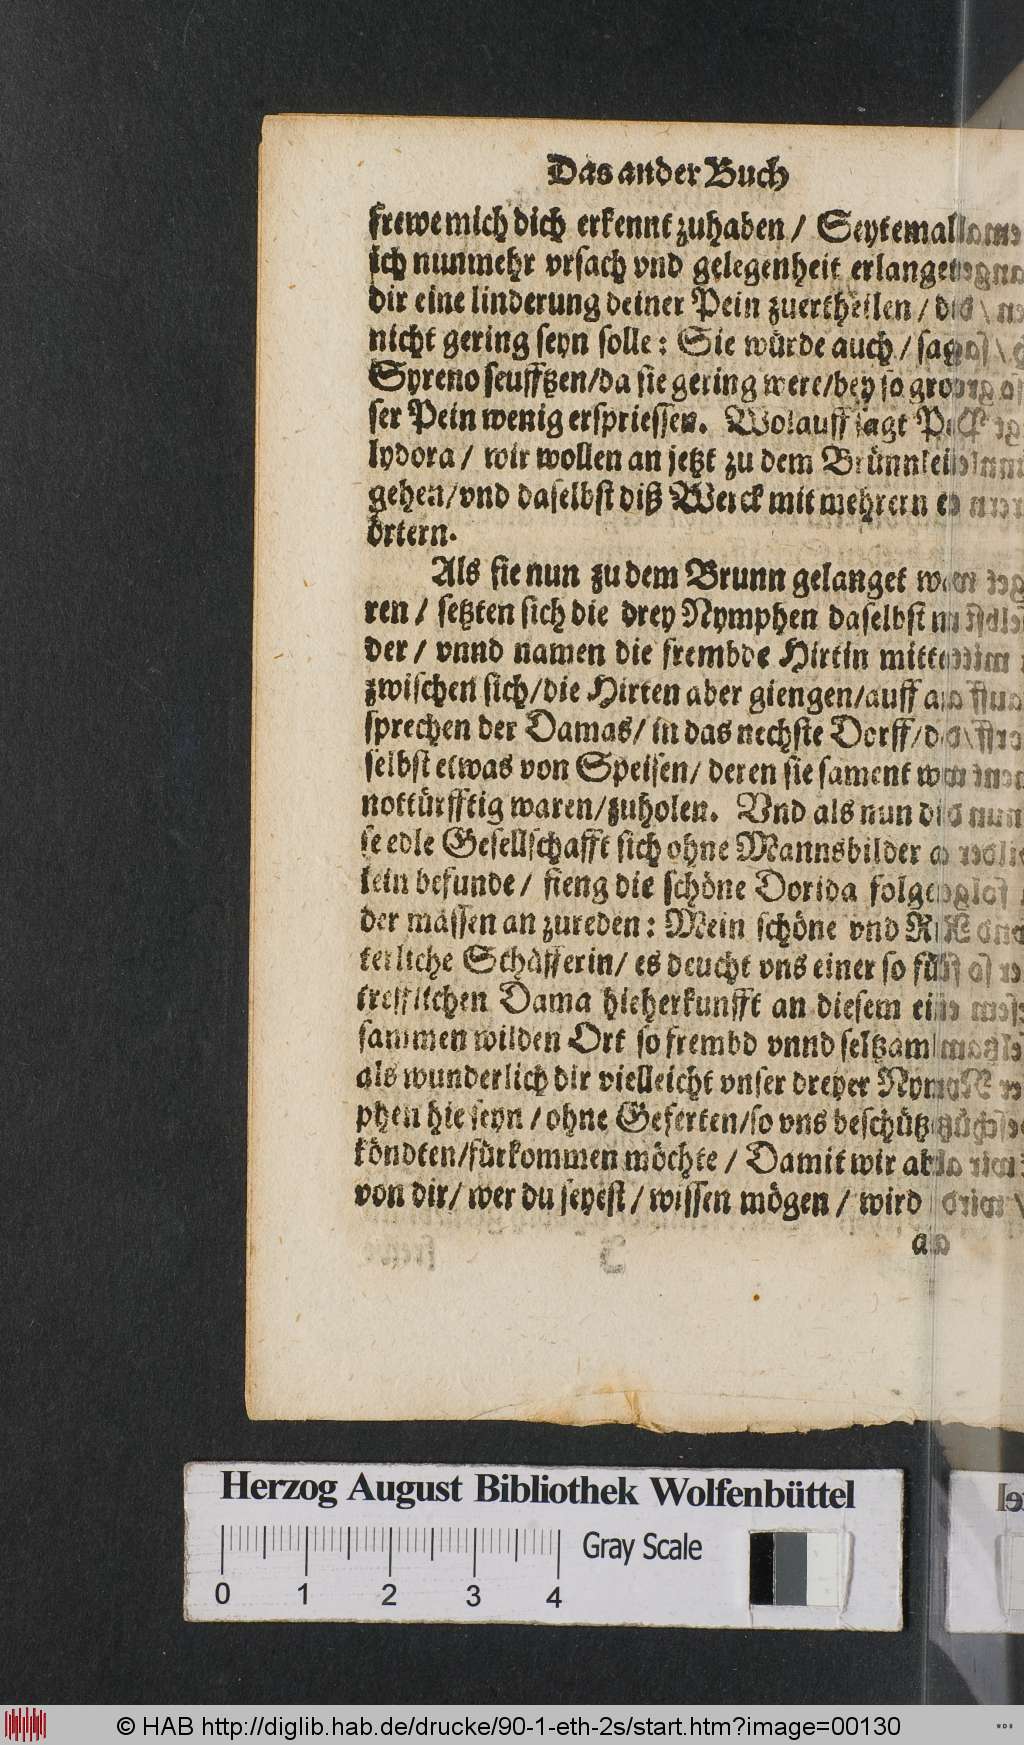 Das ander Buch
frewe mich dich erkennt zuhaben / Seytemal
ich nunmehr vrsach vnd gelegenheit erlanget
dir eine linderung deiner Pein zuertheilen / die
nicht gering seyn solle: Sie würde auch / sagt
Syreno seufftzen/da sie gering were/bey so gros-
ser Pein wenig erspriessen. Wolauff sagt Po-
lydora / wir wollen an jetzt zu dem Brünnlein
gehen/vnd daselbst diß Werck mit mehrern er
örtern.
Als sie nun zu dem Brunn gelanget wa-
ren / setzten sich die drey Nymphen daselbst ni
der / vnnd namen die frembde Hirtin mitten
zwischen sich/die Hirten aber giengen/auff an
sprechen der Damas/ in das nechste Dorff/da
selbst etwas von Speisen/ deren sie sament wol
nottürfftig waren/zuholen. Vnd als nun die
se edle Gesellschafft sich ohne Mannsbilder al
lein befunde / fieng die schöne Dorida folgen
der massen an zureden: Mein schöne vnd Rit
terliche Schäfferin/ es deucht vns einer so für
trefflichen Dama hieherkunfft an diesem ein
sammen wilden Ort so frembd vnnd seltzam
als wunderlich dir vielleicht vnser dreyer Nym
phen hie seyn / ohne Geferten/so vns beschütz
köndten/fürkommen möchte / Damit wir aber
von dir/ wer du seyest / wissen mögen / wird
an
Herzog August Bibliothek Wolfenbüttel
Gray Scale
0 1 2 3 4
© HAB http://diglib.hab.de/drucke/90-1-eth-2s/start.htm?image=00130